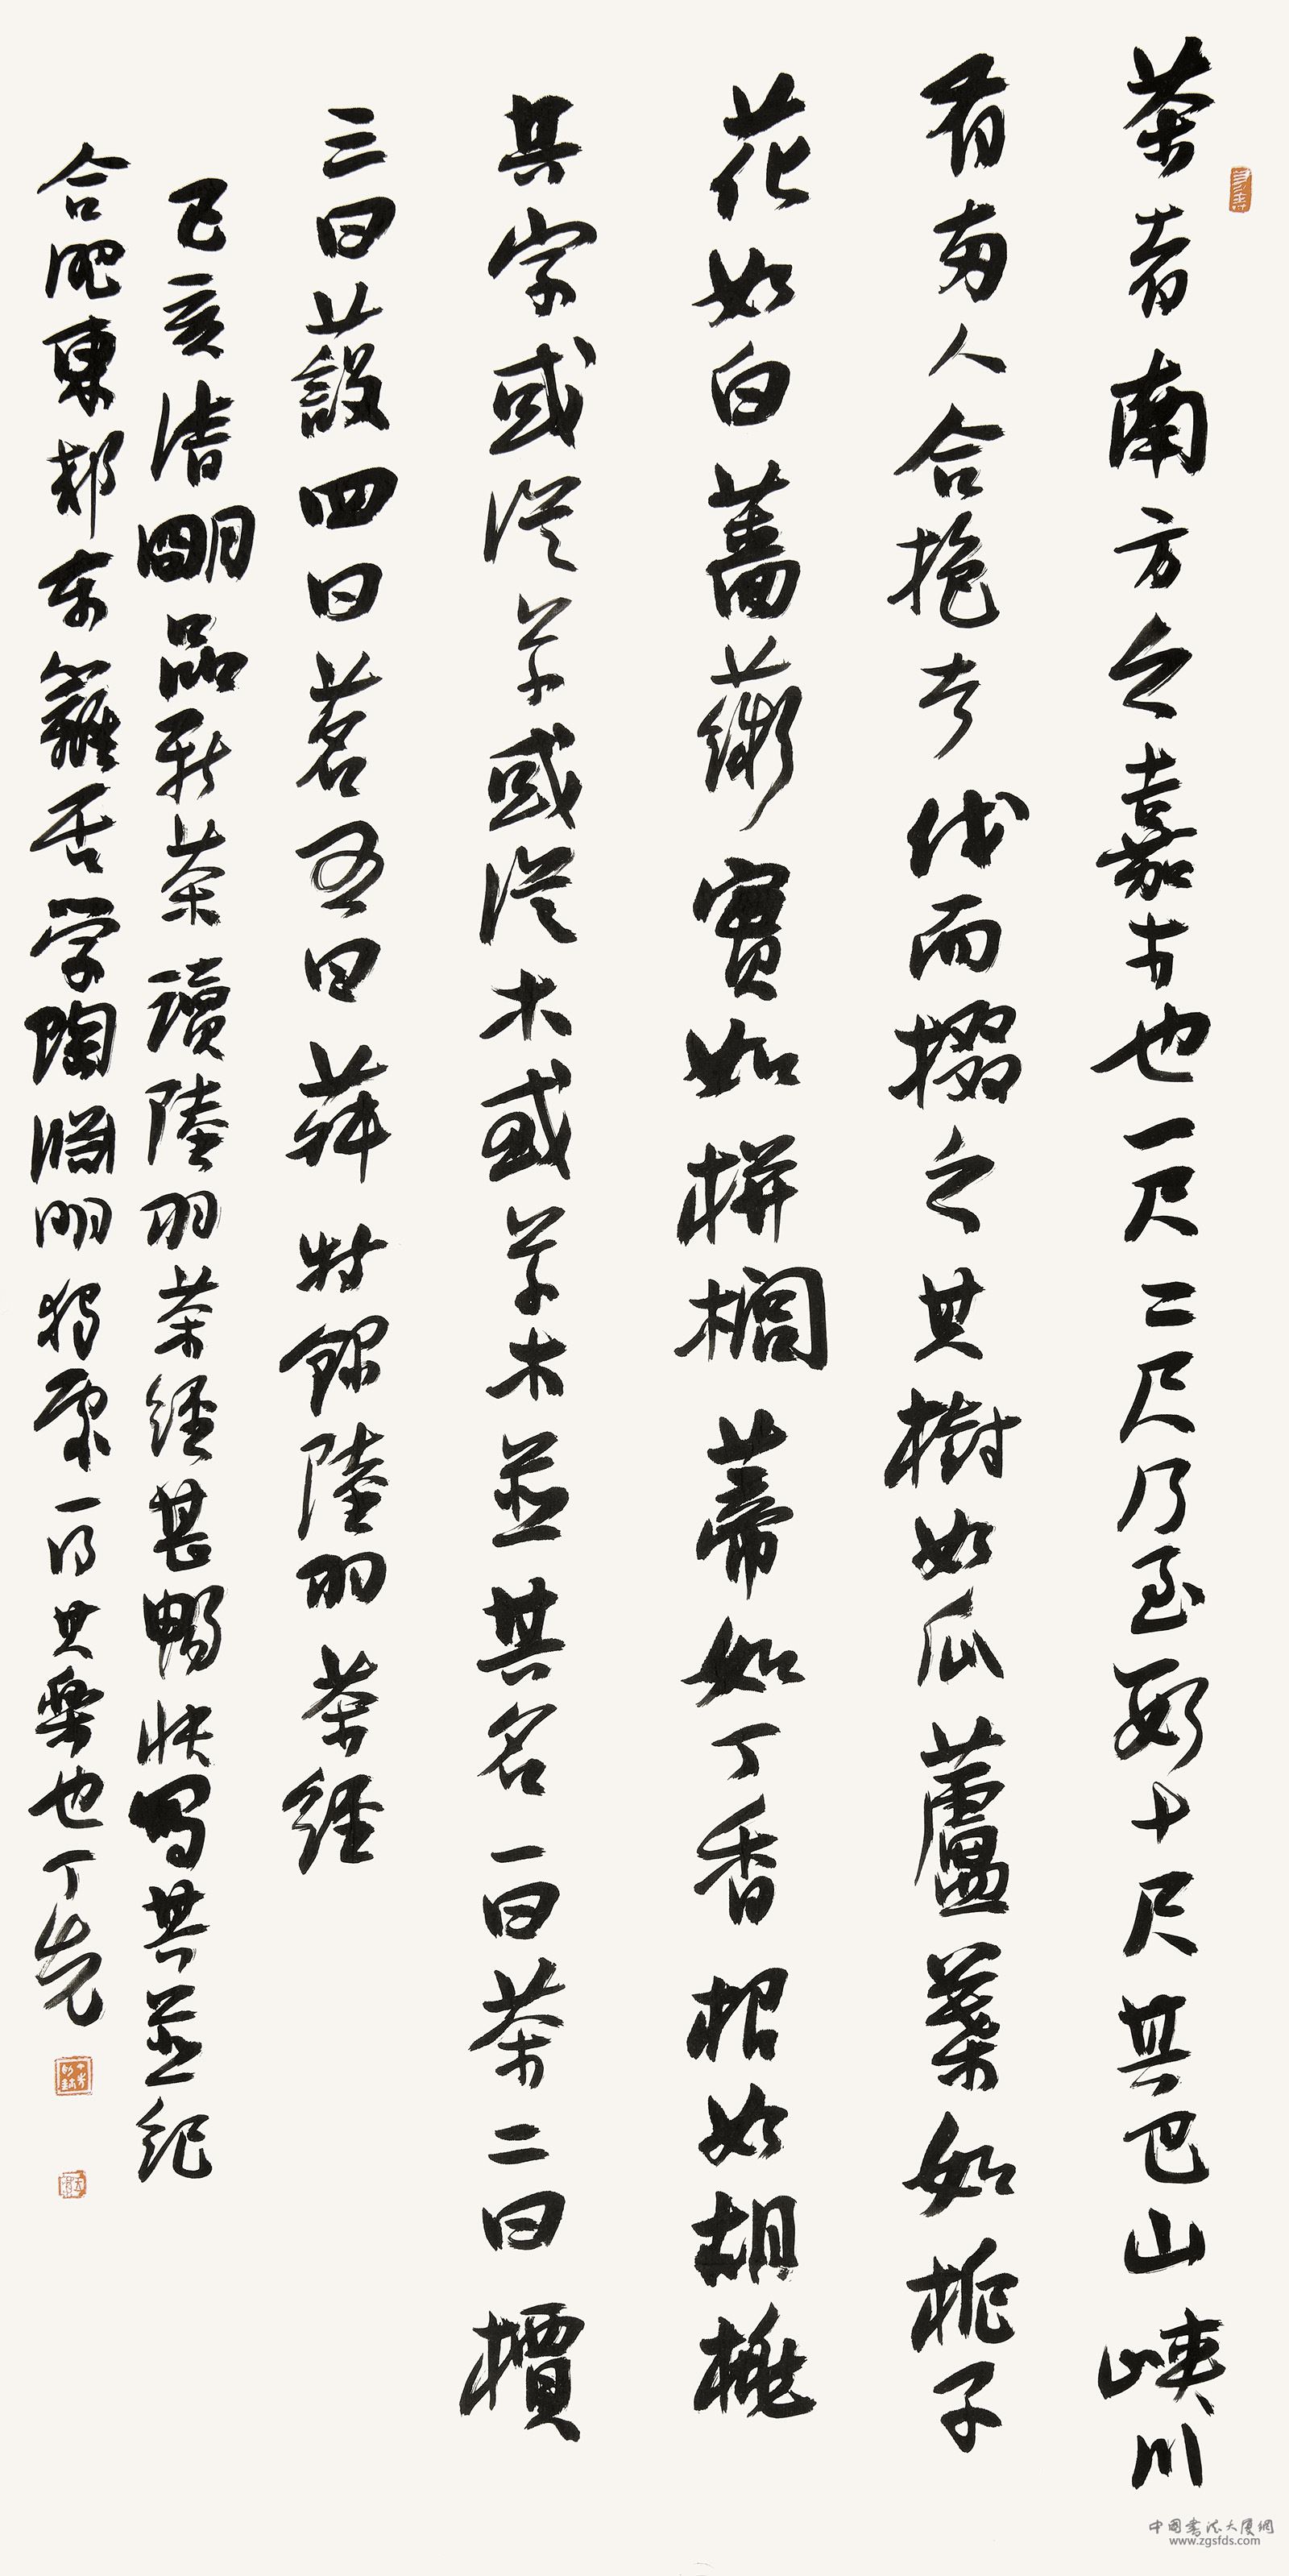 茶者南方之嘉木也一尺二尺乃至數十尺其巴山峽川
有兩人合抱者伐而掇之其樹如瓜蘆葉如梔子
花如白薔薇實如栟櫚蒂如丁香根如胡桃
其字或從草或從木或草木並其名一曰茶二曰檟
三曰蔎四曰茗五曰荈特錄陸羽茶經
己亥清明品新茶讀陸羽茶經甚暢快寫其並紀
合肥東郊東籬居學陶淵明獨乘一得其樂也丁先
中國書法大廈網
www.zgsfds.com